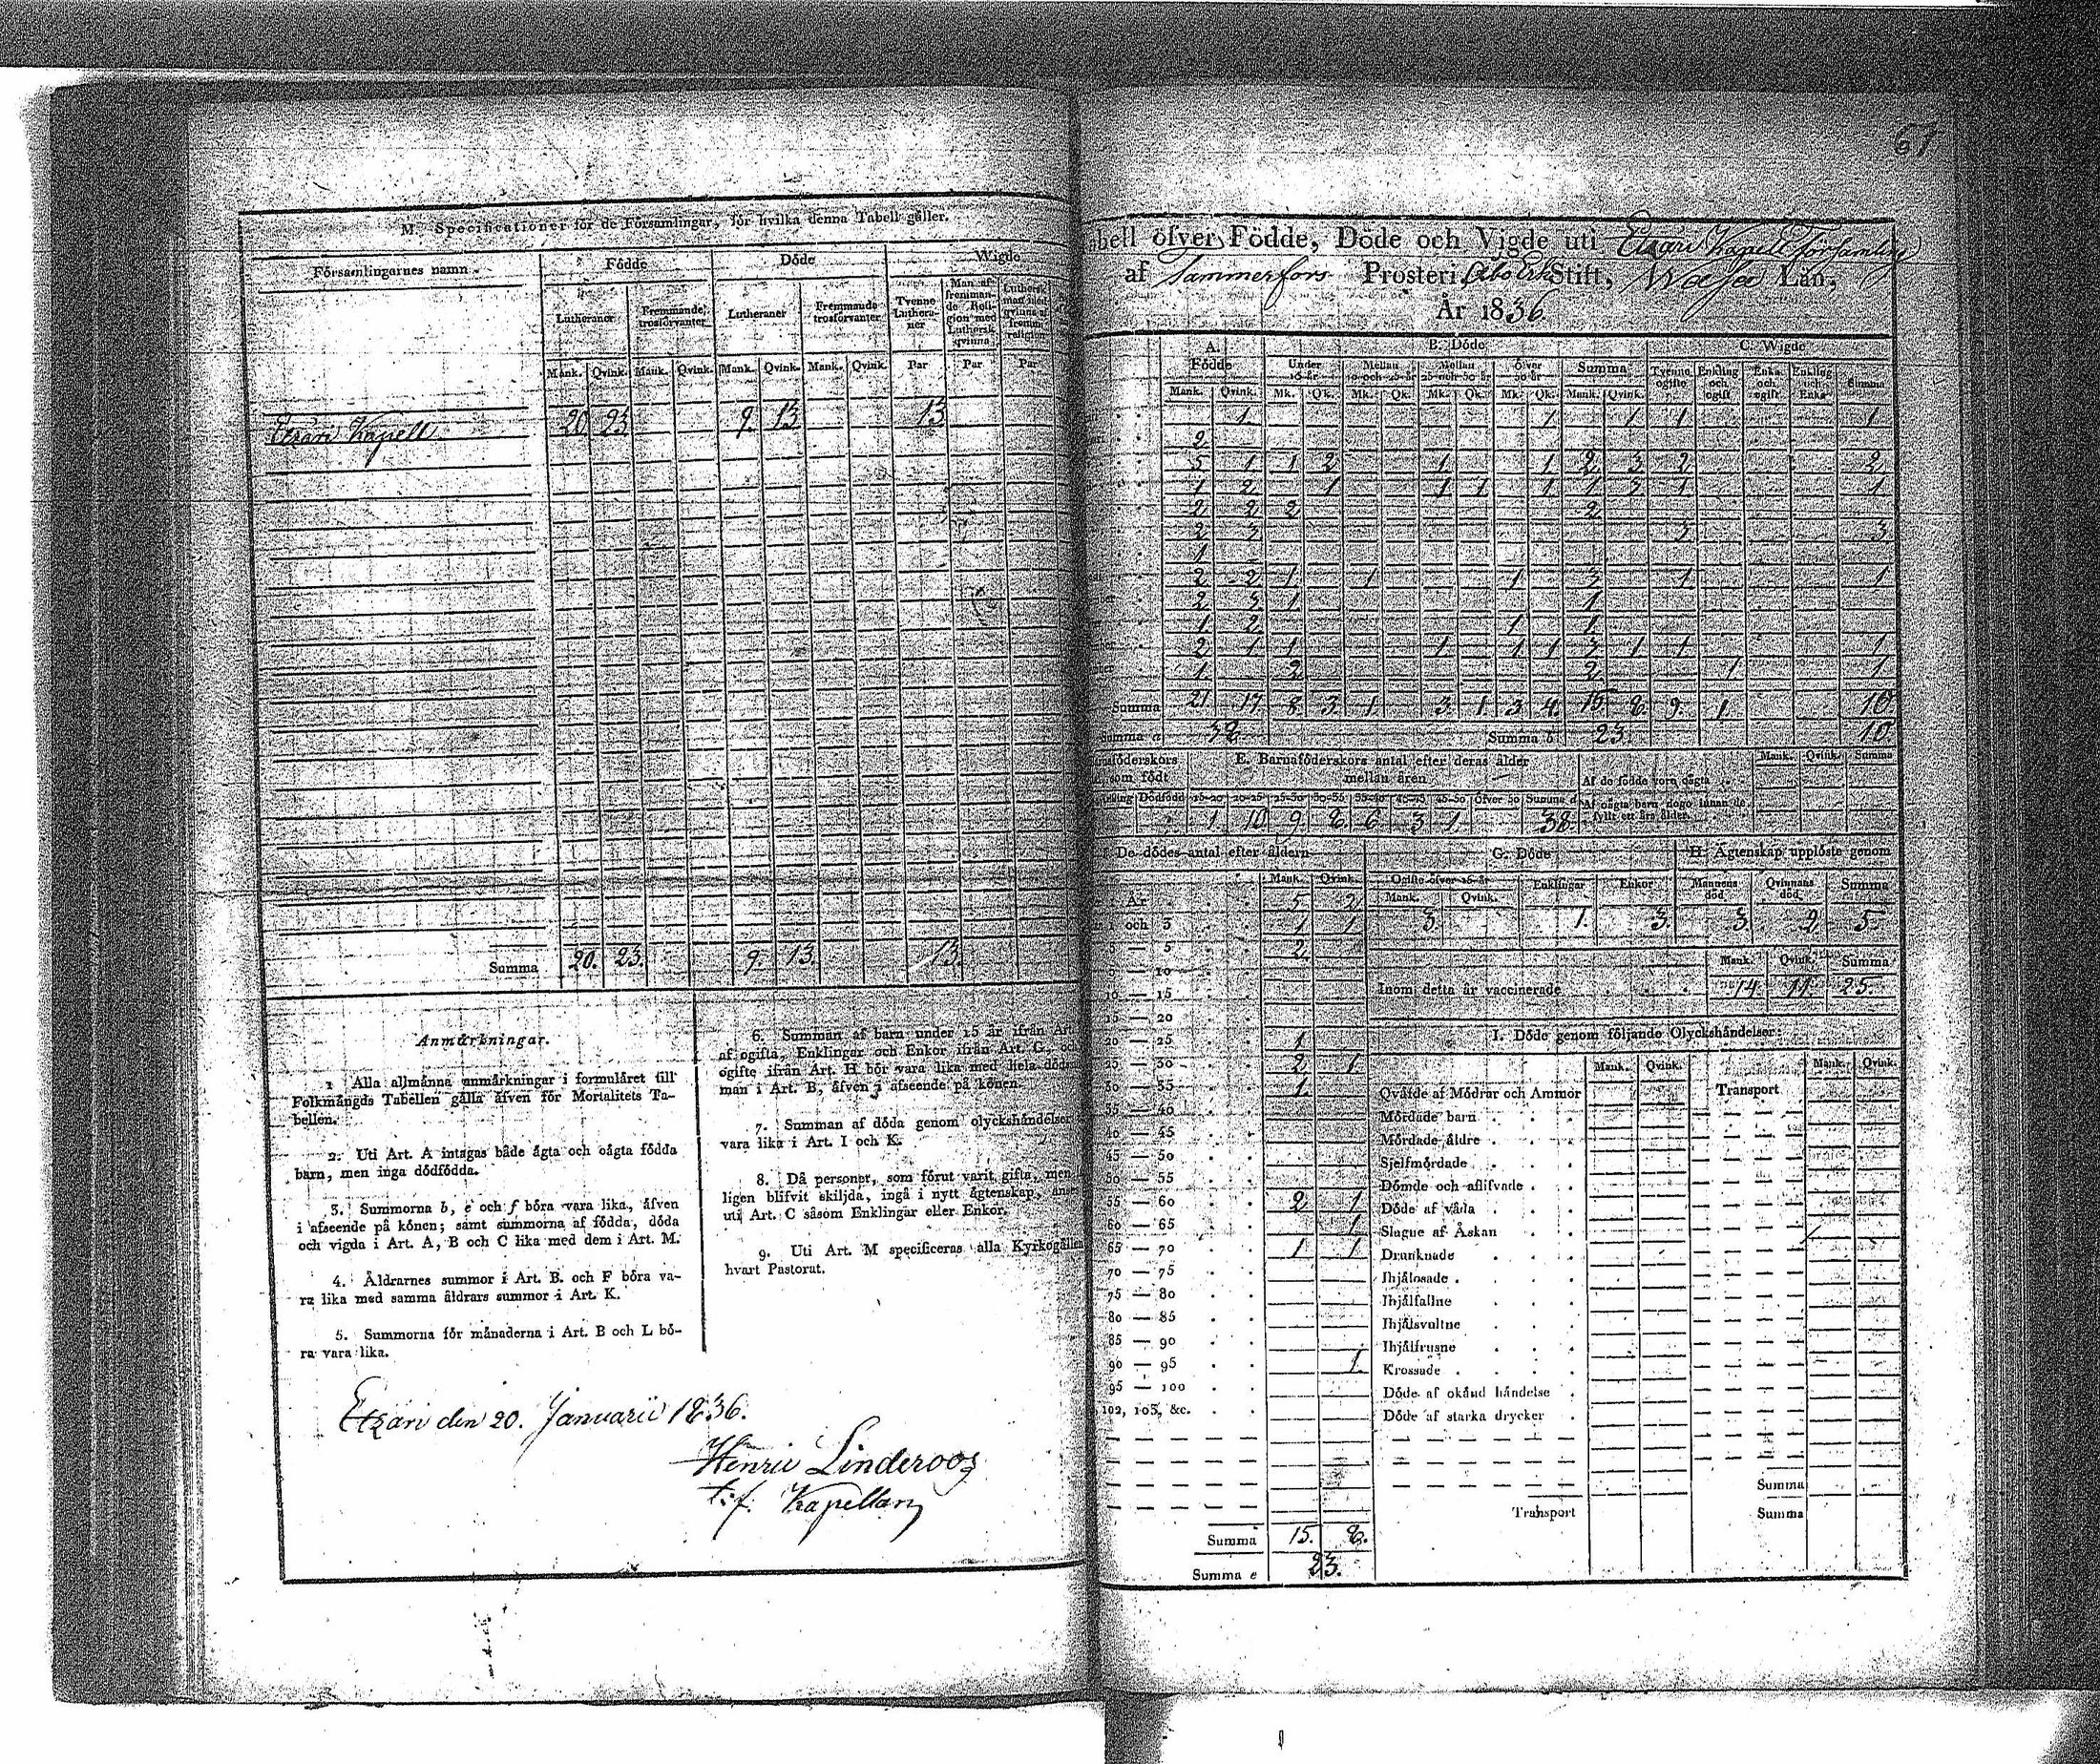 M. Specificationer för de Församlingar, för hvilka denna Tabell gäller.
Församlingarnes namn.
Födde
Döde
Wigde
Lutheraner
Fremmande trosförvanter
Lutheraner
Fremmande trosförvanter
Tvenne Lutheraner
Man af fremmande Religion med Luthersk qvinna
Luthersk man med qvinna af fremm. religion
Mank. Qvink. Mank. Qvink. Mank. Qvink. Mank. Qvink. Par Par Par
Etzäri Kapell 20 23 9. 13 13
Summa 20. 23. 9. 13. 13.
Anmärkningar.
1 Alla allmänna anmärkningar i formuläret till
Folkmängds Tabellen gälla äfven för Mortalitets Ta-
bellen.
2. Uti Art. A intagas både ägta och oägta födda
barn, men inga dödfödda.
3. Summorna b, e och f böra vara lika, äfven
i afseende på könen; samt summorna af födda, döda
och vigda i Art. A, B och C lika med dem i Art. M.
4. Åldrarnes summor i Art. B. och F böra va-
ra lika med samma åldrars summor i Art. K.
5. Summorna för månaderna i Art. B och L bö-
ra vara lika.
6. Summan af barn under 15 år ifrån Art.
af ogifta, Enklingar och Enkor ifrån Art. G. och
ogifte ifrån Art. H bör vara lika med hela döds
man i Art. B, äfven i afseende på könen.
7. Summan af döda genom olyckshändelser
vara lika i Art. I och K.
8. Då personer, som förut varit gifta, men
ligen blifvit skiljda, ingå i nytt ägtenskap, anses
uti Art. C såsom Enklingar eller Enkor.
9. Uti Art. M specificeras alla Kyrkogällen
hvart Pastorat.
Etzäri den 20. Januarii 1836.
Henric Linderoos
t. f. Kapellan
67
bell öfver Födde, Döde och Vigde uti Etzäri Kapells Församling
af Tammerfors Prosteri, Åbo Erke Stift, Wasa Län,
År 1836
A. Födde
B. Döde
C. Wigde
Under 10 år
Mellan 10 och 25 år
Mellan 25 och 50 år
öfver 50 år
Summa
Tvenne ogifte
Enkling och ogift
Enka och ogift
Enkling och Enka
Summa
Mank. Qvink. Mk. Qk. Mk. Qk. Mk. Qk. Mk. Qk. Mank. Qvink.
1 1 1 1 1
2
5 1 1 2 1 1 2 3 2 2
1 2 1 1 1 1 1 3 1 1
2 2 2 2
2 3 3 3
1
2 2 1 1 1 3 1 1
2 3 1 1
1 2 1 1
2 1 1 1 1 1 3 1 1 1
1 2 2 1 1
Summa 21 17 8 3 1 3 1 3 4 15 8 9. 1. 10
Summa a 38 Summa b 23 10
föderskors
som födt
E. Barnaföderskors antal efter deras ålder
mellan åren
Dödfödd 15-20 20-25 25-30 30-35 35-40 40-45 45-50 öfver 50 Summa d
1 10 9 8 6 3 1 38
Af de födde voro oägta
Af oägta barn dogo innan de
fyllt ett års ålder
Mank. Qvink. Summa
De dödes antal efter åldern
Mank. Qvink.
År 5 2
1 och 3 1 1
3 — 5 2
5 — 10
10 — 15
15 — 20
20 — 25 1
25 — 30 2 1
30 — 35 1
35 — 40
40 — 45
45 — 50
50 — 55
55 — 60 2 1
60 — 65 1
65 — 70 1 1
70 — 75
75 — 80
80 — 85
85 — 90
90 — 95 1
95 — 100
102, 103, &c.
Summa 15. 8.
Summa e 23.
G. Döde
Ogifte öfver 15 år
Enklingar
Enkor
Mank. Qvink.
3. 1. 3.
H. Ägtenskap upplöste genom
Mannens död
Qvinnans död
Summa
3. 2 5
Mank. Qvink. Summa
Inom detta år vaccinerade 14 11 25.
I. Döde genom följande Olyckshändelser:
Mank. Qvink. Mank. Qvink.
Qväfde af Mödrar och Ammor
Mördade barn
Mördade äldre
Sjelfmördade
Dömde och aflifvade
Döde af våda
Slagne af Åskan
Drunknade
Ihjälosade
Ihjälfallne
Ihjälsvultne
Ihjälfrusne
Krossade
Döde af okänd händelse
Döde af starka drycker
Transport
Transport
Summa
Summa